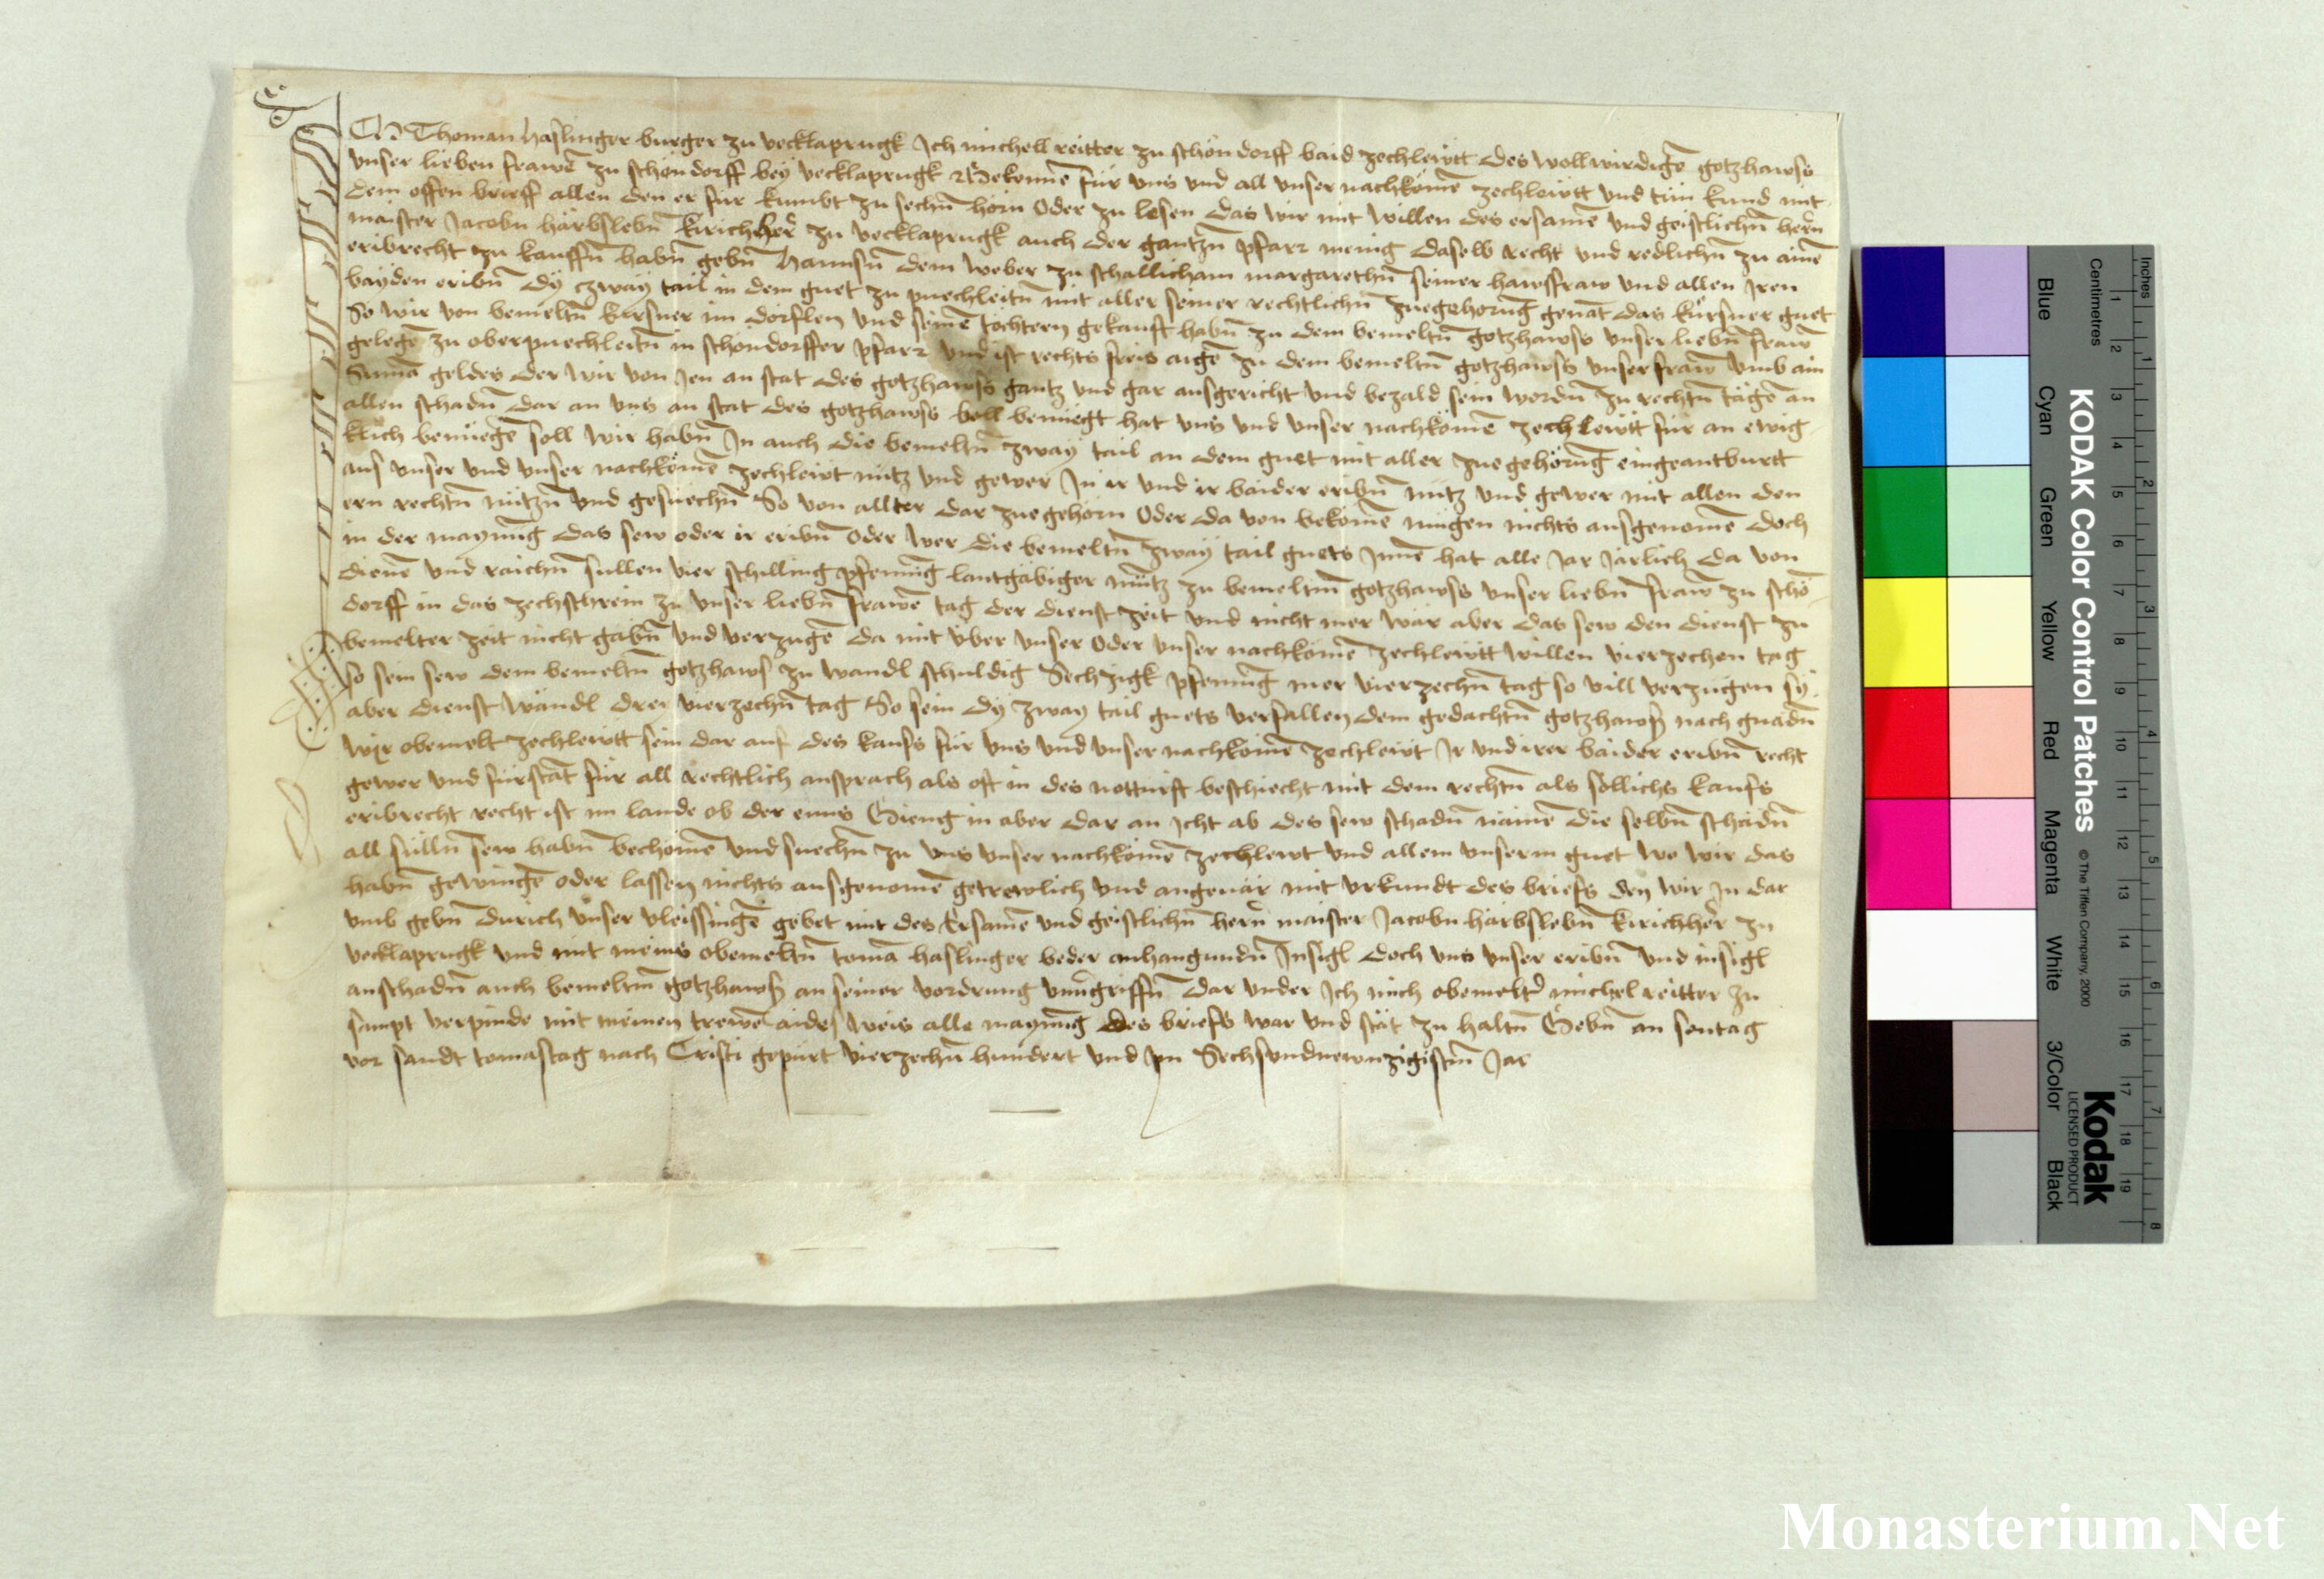 ICh Thoman haslinger burger zu vecklaprugk Ich michell reitter zu schöndorff baid zechlewtt des wollwirdigē gotzhawss
vnser lieben frawē zu schöndorff bey vecklaprugk Bekennē für vns vnd all vnser nachkömē zechlewtt vnd tun kund mit
dem offen brieff allen den er für kumbt zu sechn̄ horn Oder zu lesen das wir mit willen des ersamē vnd geistlichn̄ hern̄
maister Jacobn härbslebn̄ kirichher zu vecklaprugk auch der gantzn̄ pfarr menig daselb recht vnd redlichn̄ zu ainē
eribrecht zu kauffn̄ habn̄ gebn̄ Hannsn̄ dem weber zu schallicham margarethn̄ seiner hawsfraw vnd allen Iren
bayden eribn̄ dy czway tail in dem guet zu puechleitn̄ mit aller seiner rechtlichn̄ zuegehorūg genāt das kürsner guet
So wir von bemeltn̄ kürsner im dorflen vnd seinē töchtern gekauft habn̄ zu dem bemeltn̄ gotzhawss vnser liebn̄ frawn̄
gelegē zu oberpuechleitn̄ in schöndorffer pfarr vnd ist rechts freis aigē zu dem bemeltn̄ gotzhawss vnser frawn̄ vmb ain
Sumā geldes der wir von Jen an stat des gotzhawss gantz vnd gar ausgericht vnd bezald sein wordn̄ zu rechtn̄ tägē an
allen schadn̄ dar an vns an stat des gotzhawss voll benüegt hat vns vnd vnser nachkömē zechlewtt für an ewig
klich benüegē soll wir habn̄ In auch die bemeltn̄ zway tail an dem guet mit aller zuegehörūg eingeantburtt
aus vnser vnd vnser nachkömē zechlewt nutz vnd gewer In ir vnd ir baider eribn̄ nutz vnd gewer mit allen den
ern rechtn̄ nützn̄ vnd gesuechn̄ So von allter dar zuegehörn Oder da von bekömē mügen nichts ausgenomē doch
in der maynūg das sew oder ir eribn̄ Oder wer die bemeltn̄ zway tail guets Innē hat alle Jar Järlich da von
dienē vnd raichn̄ sullen vier schilling pfennig lantgäbiger müntz zu bemeltm̄ gotzhawss vnser liebn̄ frawn̄ zu schö
dorff in das zechschrein zu vnser liebn̄ frawē tag der dienst zeit vnd nicht mer wär aber das sew den dienst zu
bemelter zeit nicht gäbn̄ vnd verzugē da mit vber vnser Oder vnser nachkömē zechlewtt willen vierzechen tag
so sein sew dem bemeltn̄ gotzhaws zu wandl schuldig Sechzigk pfennig mer vierzechn̄ tag so vill verzugen sy
aber dienst wandl drei vierzechn̄ tag So sein dy zway tail guets verfallen dem gedachtn̄ gotzhawss nach gnädn̄
wir obemelt zechlewtt sein dar auf des kaufs für vns vnd vnser nachkömē zechlewt Ir vnd irer baider eribn̄ recht
gewer vnd fürstāt für all rechtlich ansprach als oft in des notturft beschiecht mit dem rechtn̄ als söllichs kaufs
eribrecht recht ist im lande ob der enns Gieng in aber dar an Icht ab des sew schadn̄ nämē die selbn̄ schädn̄
all sulln̄ sew habn̄ bechömē vnd suechn̄ zu vns vnser nachkömē zechlewt vnd allem vnserm guet wo wir das
habn̄ gewingē oder lassen nichts ausgenomē getrewlich vnd angeuär mit vrkundt des briefs den wir In dar
vmb gebn̄ durich vnser vleissingē gebet mit des Ersamē vnd geistlichn̄ hern̄ maister Jacobn härbslebn̄ kirichher zu
vecklaprugk vnd mit meins obemeltn̄ tomā haslinger beder anhangundn̄ Insigl doch vns vnser eribn̄ vnd insigl
anschadn̄ auch bemeltm̄ gotzhawss an seiner vordrung vnnīgriffn̄ dar vnder Ich mich obemelter michel reitter zu
sampt verpinde mit meinen trewē aides weis alle maynūg des briefs war vnd stät zu haltn̄ Gebn̄ an sontag
vor sandt tomastag nach Cristi gepurt vierzechn̄ hundert vnd Jm Sechsundnewnzigistm̄ Jar
KODAK Color Control Patches
© The Tiffen Company, 2000
Kodak
LICENSED PRODUCT
Blue Cyan Green Yellow Red Magenta White 3/Color Black
Inches 1 2 3 4 5 6 7 8
Centimetres 1 2 3 4 5 6 7 8 9 10 11 12 13 14 15 16 17 18 19
Monasterium.Net